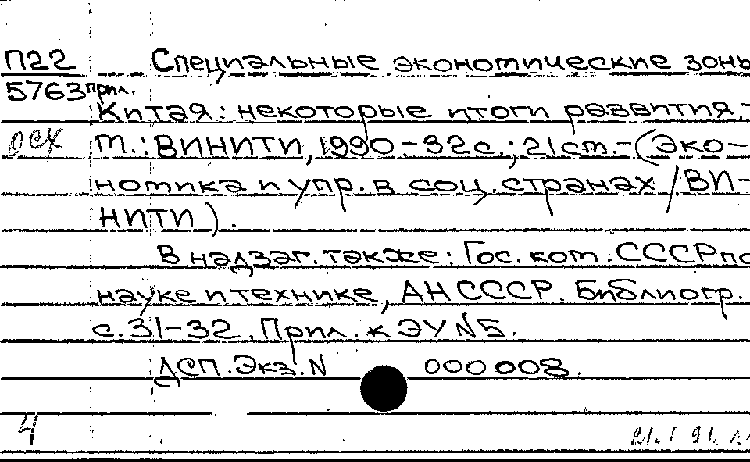 П22 Специальные экономические зоны
5763 прил.
Китая: некоторые итоги развития.-
осх М.: ВИНИТИ, 1990-32с.; 21см.-(Эко-
номика и упр. в соц. странах/ВИ-
НИТИ).
В надзаг. также: Гос. ком. СССР по
науке и технике, АН СССР. Библиогр.
с.31-32. Прил. к ЭУ N5.
ДСП. Экз. N 000008.
4